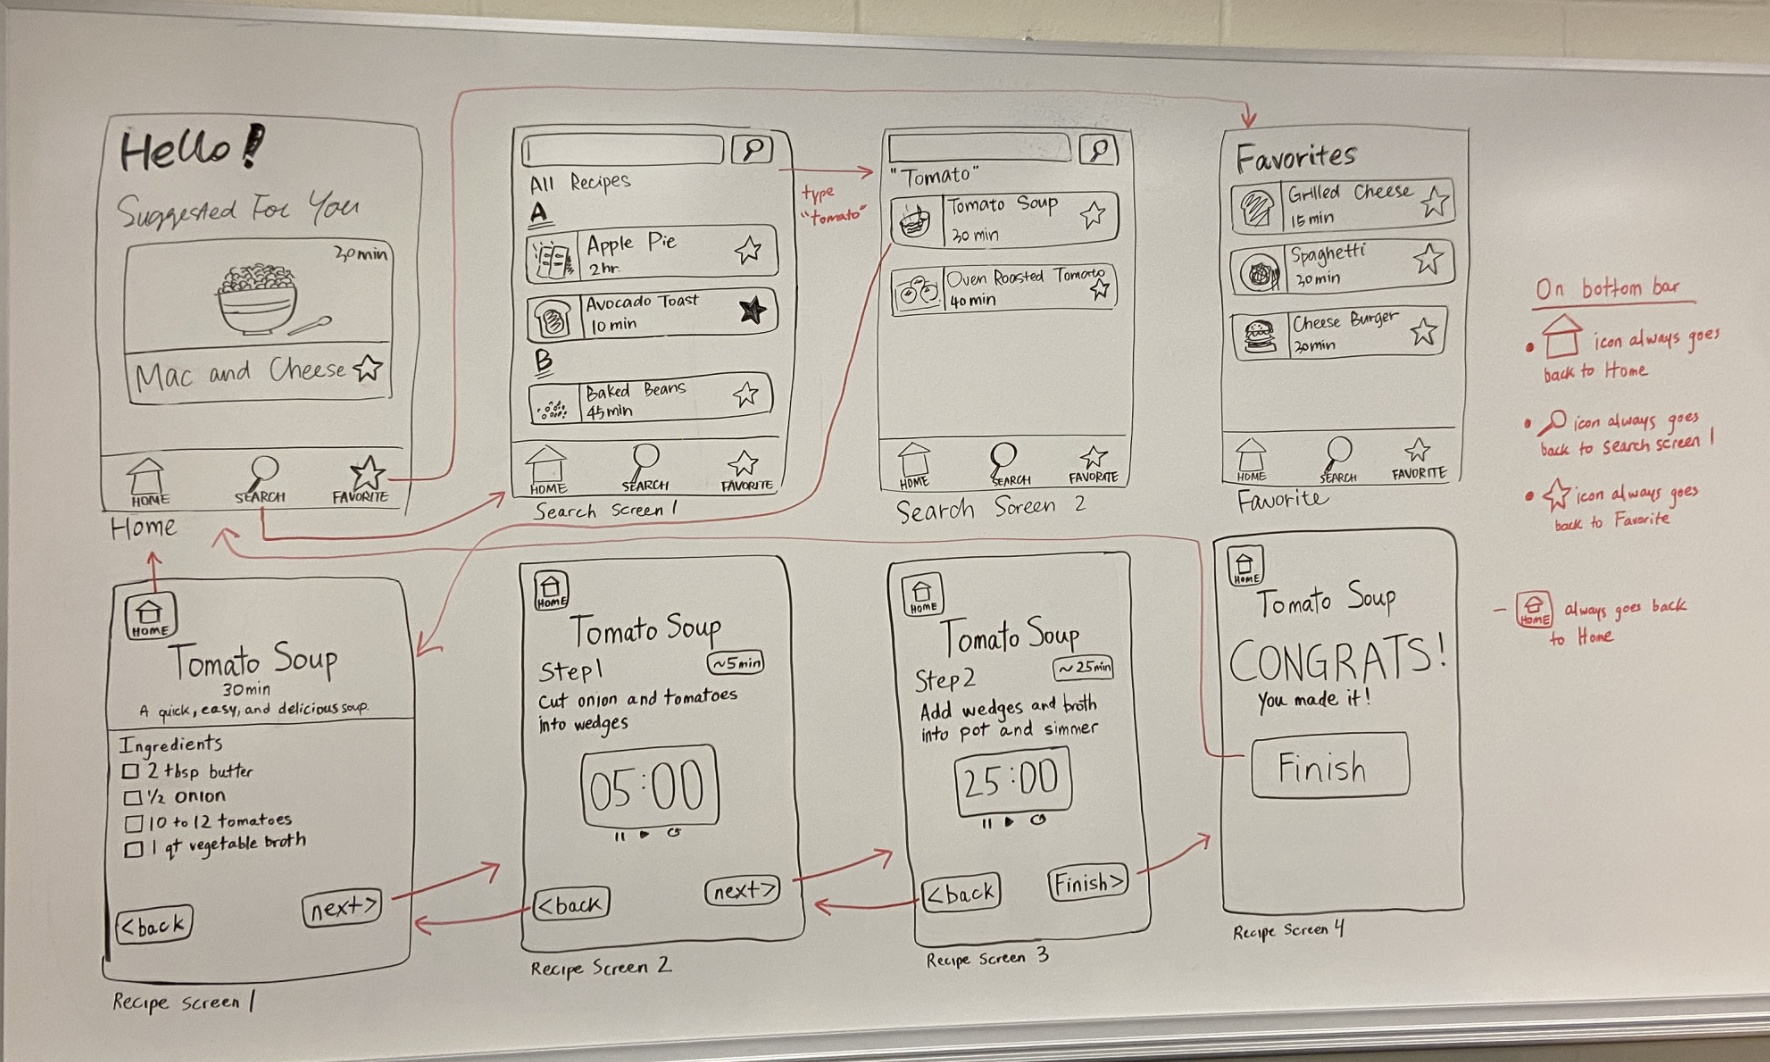 Hello!
Suggested For You
30min
Mac and Cheese
HOME
SEARCH
FAVORITE
Home
All Recipes
A
Apple Pie
2hr
Avocado Toast
10 min
B
Baked Beans
45min
HOME
SEARCH
FAVORITE
Search Screen 1
type
"tomato"
"Tomato"
Tomato Soup
30 min
Oven Roasted Tomato
40min
HOME
SEARCH
FAVORITE
Search Screen 2
Favorites
Grilled Cheese
15 min
Spaghetti
30min
Cheese Burger
30min
HOME
SEARCH
FAVORITE
Favorite
On bottom bar
• icon always goes
back to Home
• icon always goes
back to search screen 1
• icon always goes
back to Favorite
- HOME always goes back
to Home
HOME
Tomato Soup
30min
A quick, easy, and delicious soup.
Ingredients
2 tbsp butter
1/2 onion
10 to 12 tomatoes
1 qt vegetable broth
<back
next>
Recipe screen 1
HOME
Tomato Soup
Step1
~5min
Cut onion and tomatoes
into wedges
05:00
<back
next>
Recipe Screen 2
HOME
Tomato Soup
Step2
~25min
Add wedges and broth
into pot and simmer
25:00
<back
Finish>
Recipe Screen 3
HOME
Tomato Soup
CONGRATS!
You made it!
Finish
Recipe Screen 4